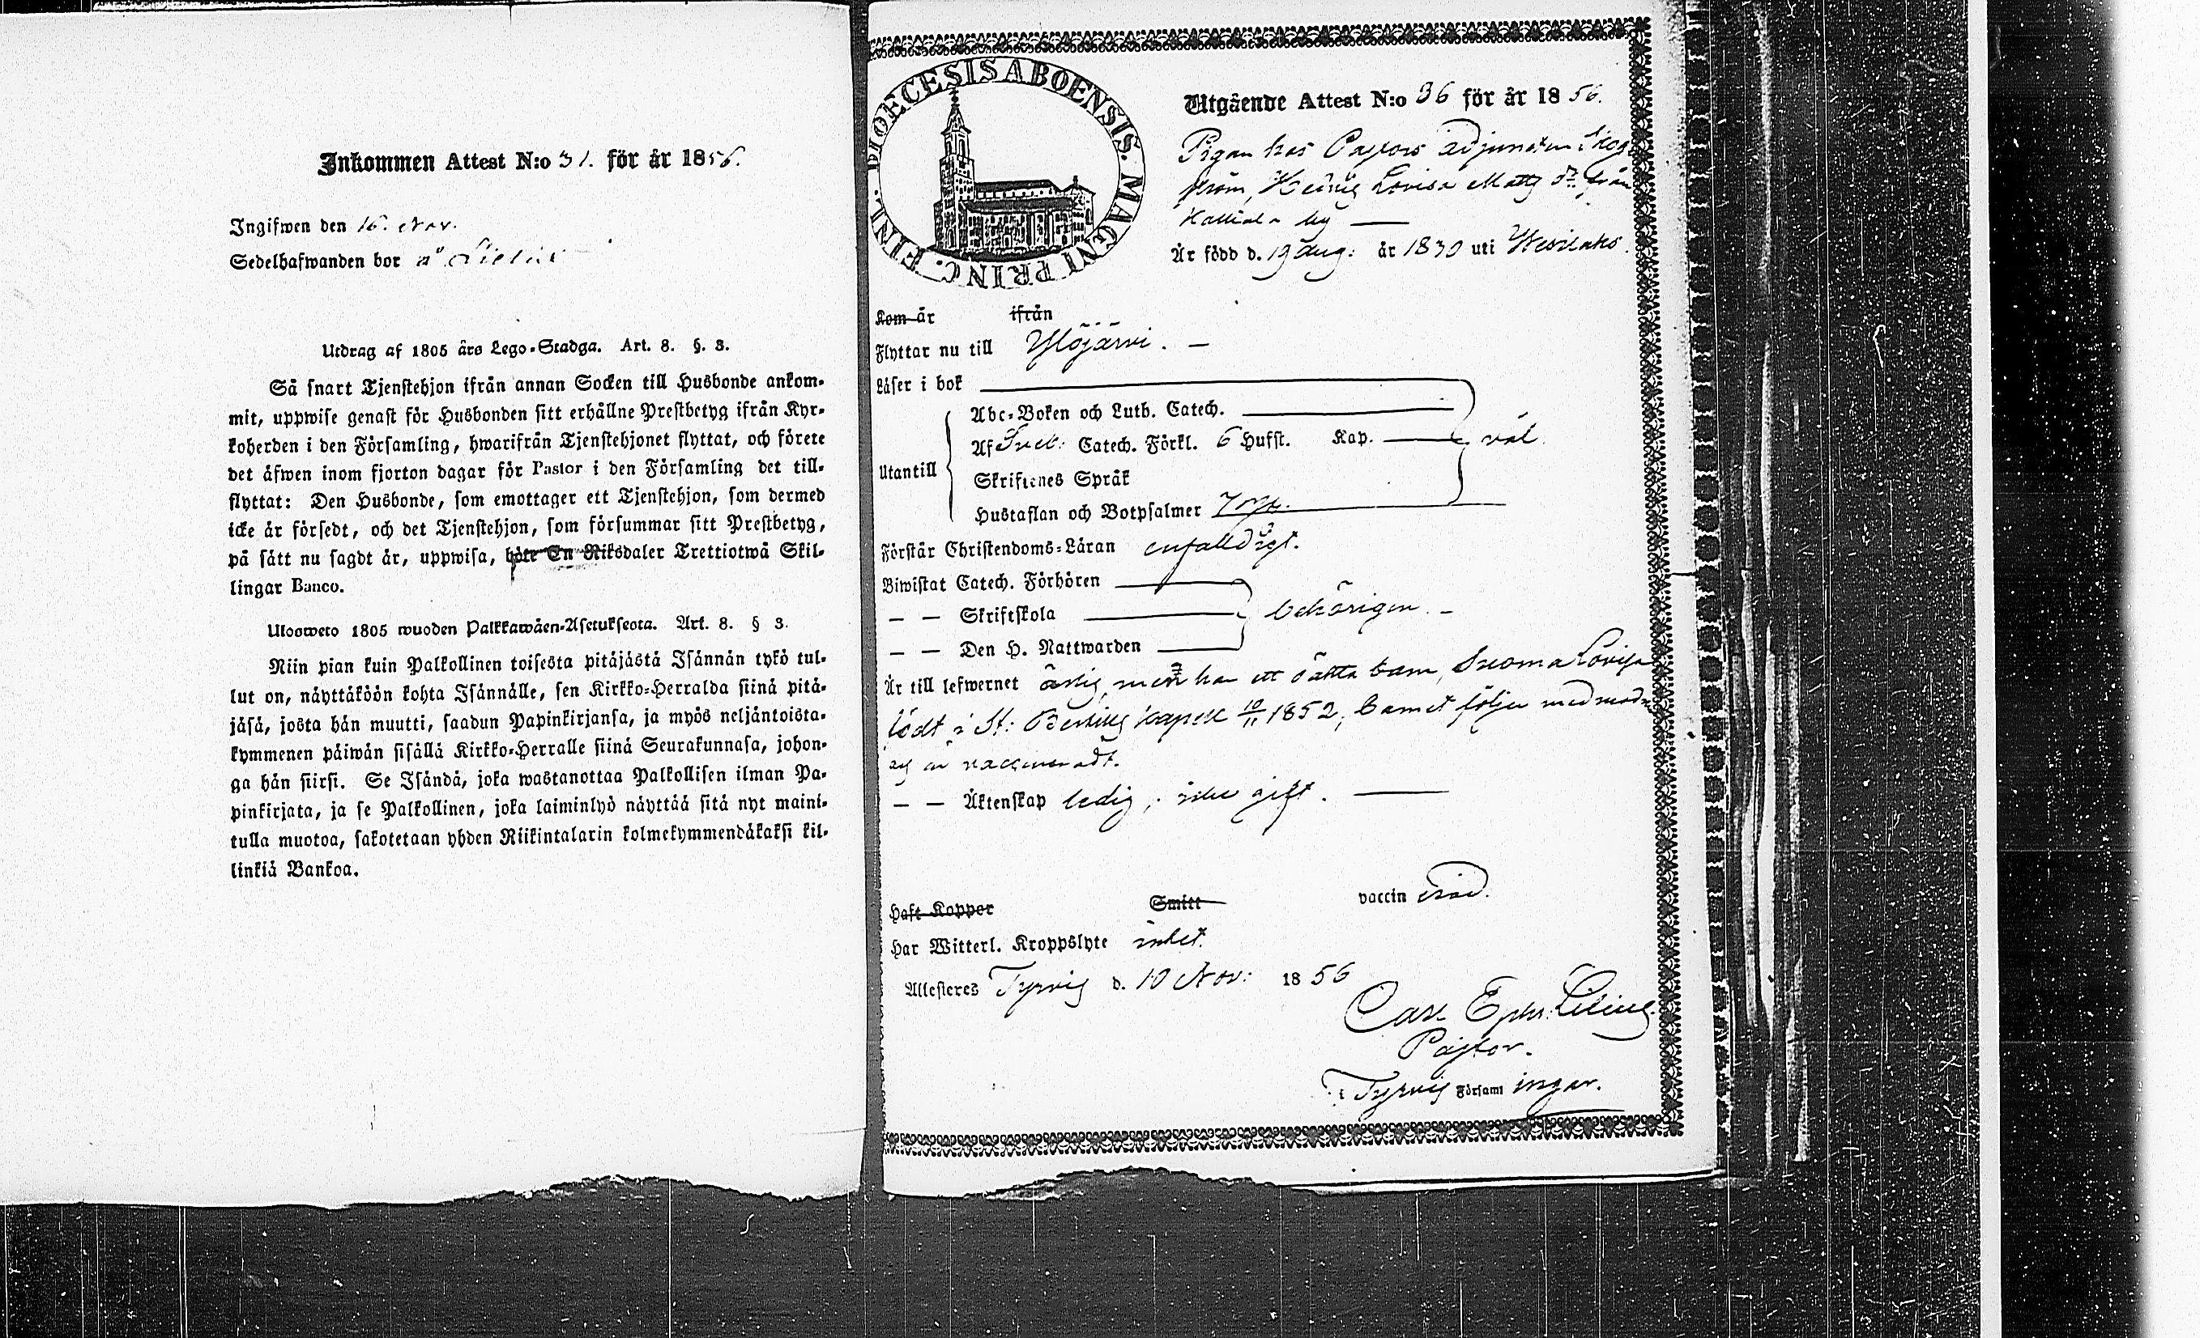 Inkommen Attest N:o 31. för år 1856.
Ingifwen den 16. Nov.
Sedelhafwanden bor å
Utdrag af 1805 års Lego-Stadga. Art. 8. §. 3.
Så snart Tjenstehjon ifrån annan Socken till Husbonde ankom-
mit, uppwise genast för Husbonden sitt erhållne Prestbetyg ifrån Kyr-
koherden i den Församling, hwarifrån Tjenstehjonet flyttat, och förete
det äfwen inom fjorton dagar för Pastor i den Församling det till-
flyttat: Den Husbonde, som emottager ett Tjenstehjon, som dermed
icke är försedt, och det Tjenstehjon, som försummar sitt Prestbetyg,
på sätt nu sagdt är, uppwisa, böte En Riksdaler Trettiotwå Skil-
lingar Banco.
Ulosweto 1805 wuoden Palkkawäen-Asetuksesta. Art. 8. § 3.
Niin pian kuin Palkollinen toisesta pitäjästä Isännän tykö tul-
lut on, näyttäköön kohta Isännälle, sen Kirkko-Herralda siinä pitä-
jäsä, josta hän muutti, saadun Papinkirjansa, ja myös neljäntoista-
kymmenen päiwän sisällä Kirkko-Herralle siinä Seurakunnasa, johon-
ga hän siirsi. Se Isändä, joka wastanottaa Palkollisen ilman Pa-
pinkirjata, ja se Palkollinen, joka laiminlyö näyttää sitä nyt maini-
tulla muotoa, sakotetaan yhden Riikintalarin kolmekymmendäkaksi kil-
linkiä Bankoa.
DIOECESIS ABOENSIS. MAGNI PRINC. FINL.
Utgående Attest N:o 36 för år 1856.
Pigan hos Pastors adjuncten Skog-
ström, Hedvig Lovisa Matts dr från
by
Är född d. 19 Aug: år 1830 uti Wesilaks.
Kom år ifrån
Flyttar nu till Ylöjärvi.
Läser i bok
Abc-Boken och Luth. Catech.
Utantill
Af Sveb: Catech. Förkl. 6 Hufst. Kap. väl.
Skriftenes Språk
Hustaflan och Botpsalmer
Förstår Christendoms-Läran enfalldigt.
Biwistat Catech. Förhören
— — Skriftskola behörigen.
— — Den H. Nattwarden
Är till lefwernet ärlig, men har ett oäkta barn, Lovisa
födt i St: Bertills Kapell 10/11 1852, barnet följer med mod-
och är vaccineradt.
— — Äktenskap ledig, icke gift.
Haft Koppor Smitt vaccin erad.
Har Witterl. Kroppslyte intet.
Attesteres Tyrvis d. 10 Nov: 1856
Carl Ephr: Lilius
Pastor.
i Tyrvis Församl ingar.